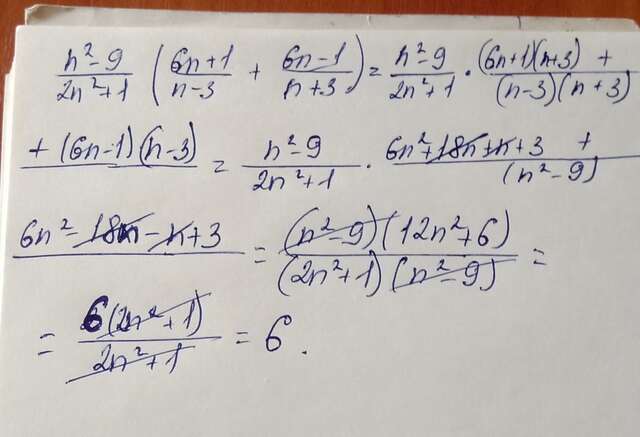 (n²-9)/(2n²+1) ((6n+1)/(n-3) + (6n-1)/(n+3)) = (n²-9)/(2n²+1) · ((6n+1)(n+3) +)/((n-3)(n+3))
(+ (6n-1)(n-3))/ = (n²-9)/(2n²+1) · (6n²+18n+n+3 +)/(n²-9)
(6n²-18n-n+3)/ = ((n²-9)(12n²+6))/((2n²+1)(n²-9)) =
= (6(2n²+1))/(2n²+1) = 6.